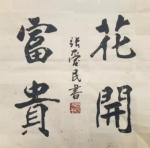 花開
富貴
張學民書